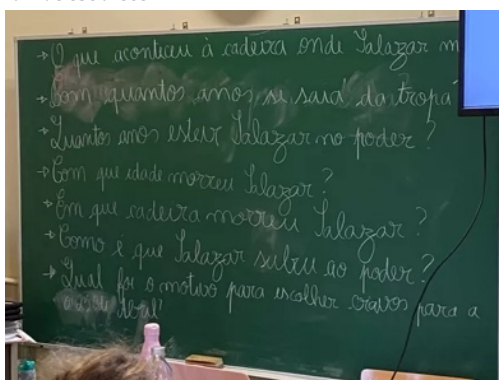 → O que aconteceu à cadeira onde Salazar m
→ Com quantos anos se saía da tropa
→ Quantos anos esteve Salazar no poder?
→ Com que idade morreu Salazar?
→ Em que cadeira morreu Salazar?
→ Como é que Salazar subiu ao poder?
→ Qual foi o motivo para escolher cravos para a